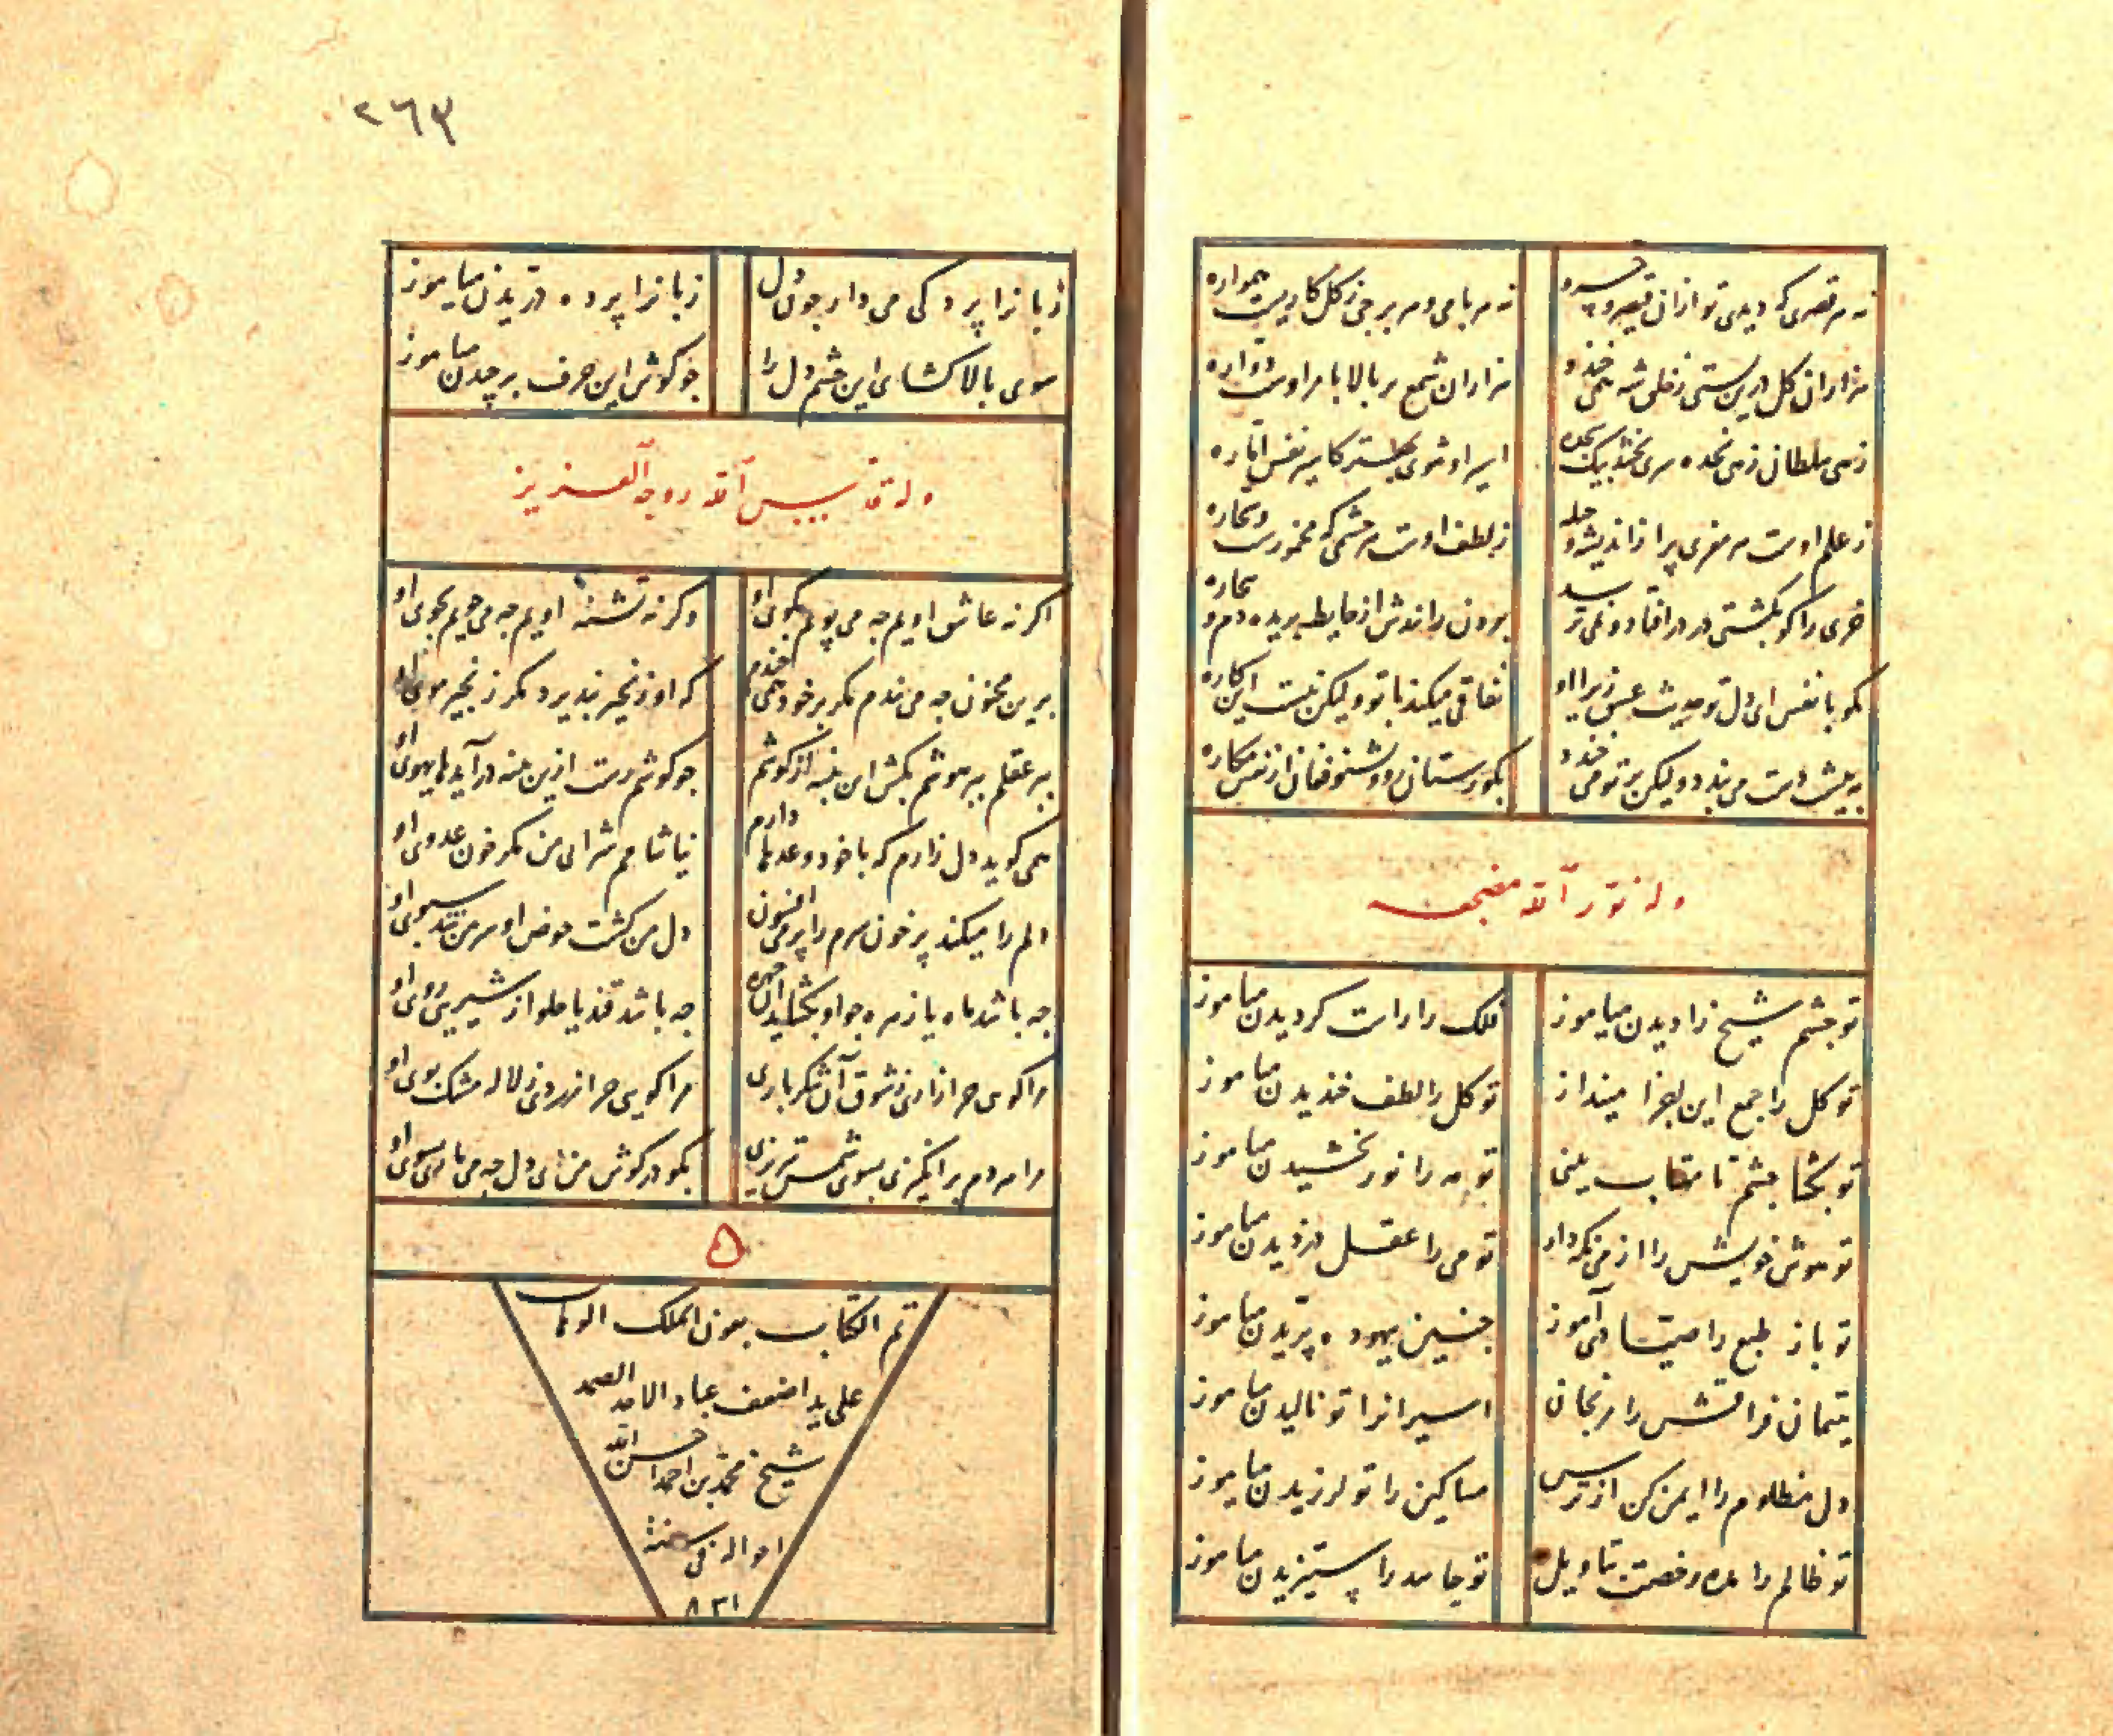 نه هر قصری که دیدی تو ازان قیصر و خسرو
نه هر بامی و هر برجی ز کل کاریست همواره
هزاران کل درین پستی
هزاران شمع بر بالا بامر اوست
زهی سلطان زهی نجده سری بخشد بیک سجده
اسیر او شوی بهتر کاسیر نفس اماره
ز علم اوست هر مغزی پر از اندیشه و حیله
ز لطف اوست هر چشمی که مخمورست و سحاره
خری را کو بکشتی در در افتاد و نمی ترسد
برون رانش از حایطه بریده دم و
مکو با نفس ای دل تو حدیث عشق زیرا او
نفاقی میکند با تو ولیکن نیست این کاره
به پیشت دست می بندد ولیکن بر تو می خندد
بکورستان رو و بشنو فغان از نفس مکاره
وله نور الله مضجعه
تو چشم شیخ را دیدن میاموز
فلک را راست کردیدن میاموز
تو کل را جمع این اجزا میندار
تو کل را لطف خندیدن میاموز
تو بکشا چشم تا مهتاب بینی
تو مه را نور بخشیدن میاموز
تو هوش خویش را از می نکه دار
تو می را عقل دزدیدن میاموز
تو باز طبع را صیاد آموز
چنین بیهوده پریدن میاموز
یتیمان فراقش را مرنجان
اسیرانرا تو نالیدن میاموز
دل مظلوم را ایمن کن از ترس
مساکین را تو لرزیدن میاموز
تو ظالم را مده رخصت بتاویل
تو جامه را ستیزیدن میاموز
٢٦٣
زبانرا پردکی می دار چون دل
زبانرا پرده دریدن میاموز
سوی بالا کشای این چشم دل را
چو کوش این حرف بر چیدن میاموز
وله قدس الله روحه العزیز
اکر نه عاشق اویم چه می پویم بکوی او
وکر نه تشنه اویم چه می جویم بجوی او
برین مجنون چه می بندم مکر بر خود همی خندم
که او زنجیر نپذیرد مکر زنجیر موی او
ببر عقلم ببر هوشم بکش این پنبه از کوشم
چو کوشم رست ازین پنبه در آید های هوی او
همی کوید دل زارم که با خود وعدها دارم
نیاشامم شرابی من مکر خون عدوی او
دلم را میکند پر خون سرم را پر می و افسون
دل من کشت حوض او سر من شد سبوی او
چه باشد ماه یا زهره چو او بکشاید آن چهره
چه باشد قند یا حلوا ز شیرینی روی او
مرا کوی چرا زاری ز شوق آن شکر باری
مرا کویی چرا زردی ز لاله مشک بوی او
مرا هر دم بر انکیزی بسوی شمس تبریزی
بکو در کوش من ای دل چه می تازی بسوی او
۵
تم الکتاب بعون الملک الوهاب
علی ید اضعف عباد الاحد الصمد
شیخ محمد بن احمد احسن الله
احواله فی سنة
٨٣١